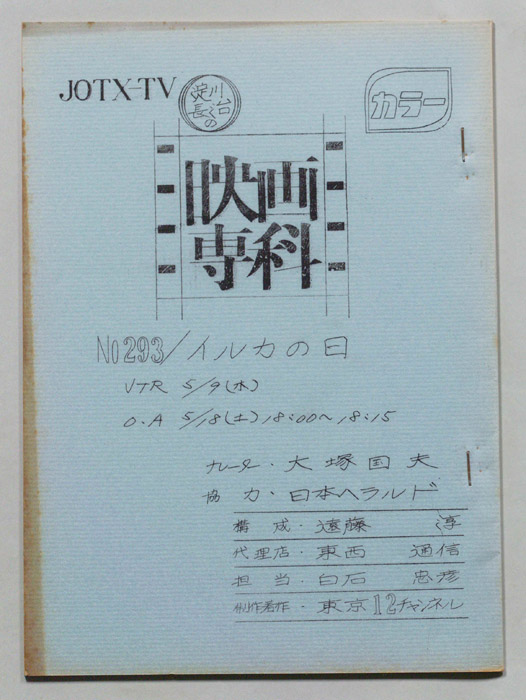 JOTX-TV
淀川長治の
カラー
映画
専科
No293/イルカの日
VTR 5/9(水)
O.A 5/18(土) 18:00〜18:15
ナレーター・大塚国夫
協力・日本ヘラルド
構成・遠藤 淳
代理店・東西 通信
担当・白石 忠彦
制作著作・東京12チャンネル